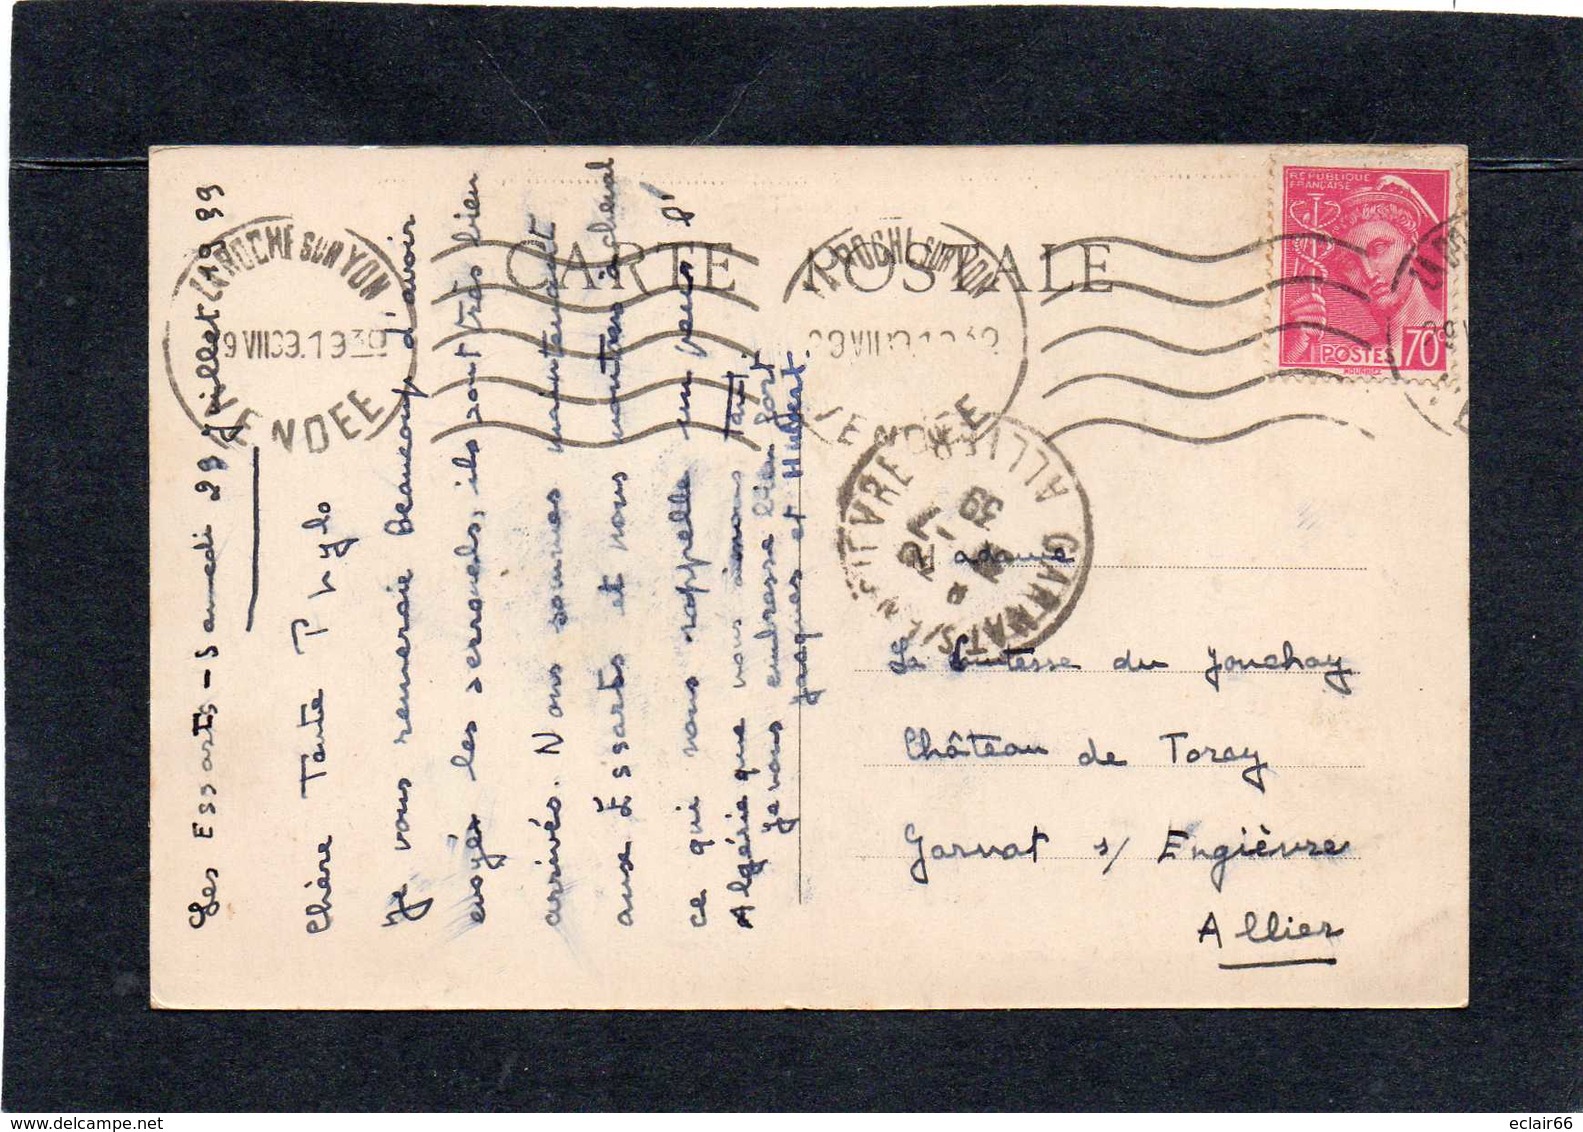 CARTE POSTALE
REPUBLIQUE
FRANÇAISE
POSTES 70c
LA ROCHE SUR YON
29 VII 39.19 30
VENDEE
GARNAT S/ENGIEVRE
ALLIER
Les Essarts - Samedi 29 Juillet 1939
Chère Tante Phylo
Je vous remercie beaucoup d'avoir
envoyés les serrouels, ils sont très bien
arrivés. Nous sommes maintenant
aux Essarts et nous montons à cheval
ce qui nous rappelle un peu l'
Algérie que nous aimons tant.
Je vous embrasse bien fort
Jacques et Hubert.
Madame
La Comtesse du Jonchay
Château de Toray
Garnat s/ Engièvre
Allier
eclair66